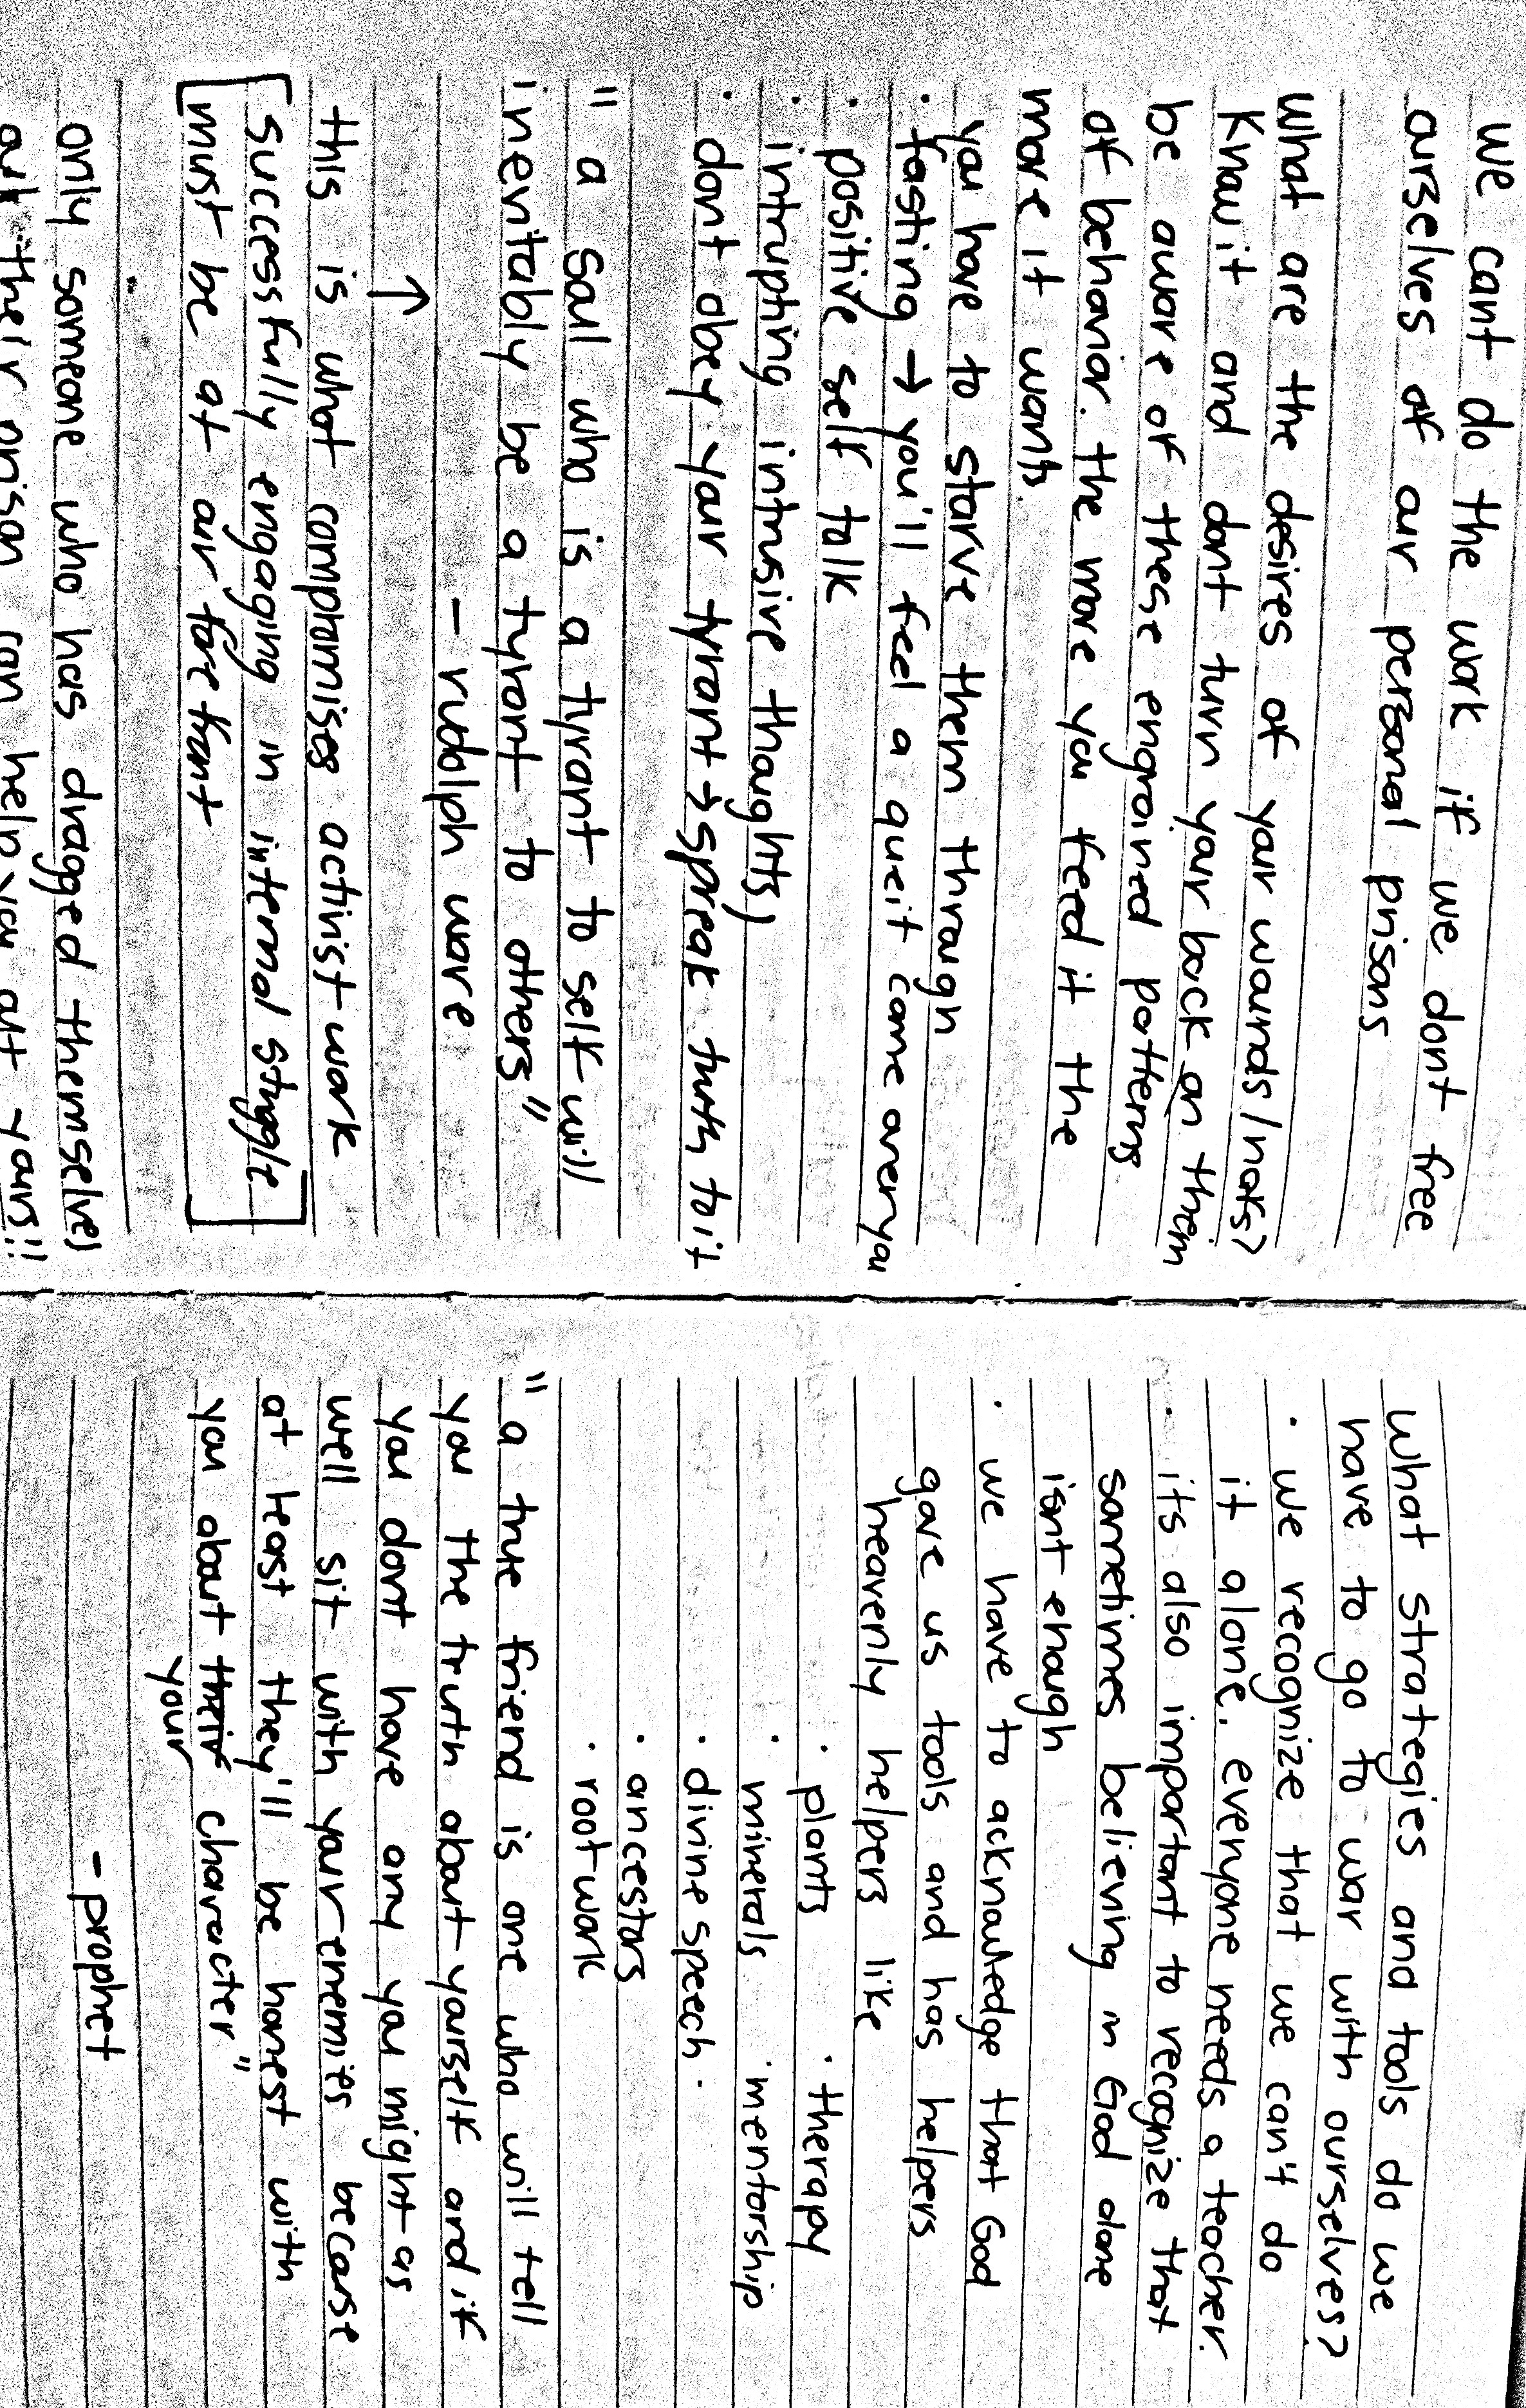 we cant do the work if we dont free
ourselves of our personal prisons
What are the desires of your wounds/nafs?
Know it and dont turn your back on them
be aware of these engrained patterns
of behavior. the more you feed it the
more it wants.
you have to starve them through
· fasting → you'll feel a queit come over you
· positive self talk
· intrupting intrusive thoughts)
· dont obey your tyrant → speak truth to it
" a soul who is a tyrant to self will
inevitably be a tyrant to others"
- rudolph ware
↑
this is what compromises activist work
[successfully engaging in internal struggle
must be at our forefront]
only someone who has dragged themselves
out their prison can help you out yours!!
What strategies and tools do we
have to go to war with ourselves?
· we recognize that we can't do
it alone. everyone needs a teacher.
· its also important to recognize that
sometimes believing in God alone
isnt enough
· we have to acknowledge that God
gave us tools and has helpers
heavenly helpers like
· plants · therapy
· minerals · mentorship
· divine speech ·
· ancestors
· rootwork
" a true friend is one who will tell
you the truth about yourself and if
you dont have any you might as
well sit with your enemies because
at least they'll be honest with
you about their character"
your
- prophet